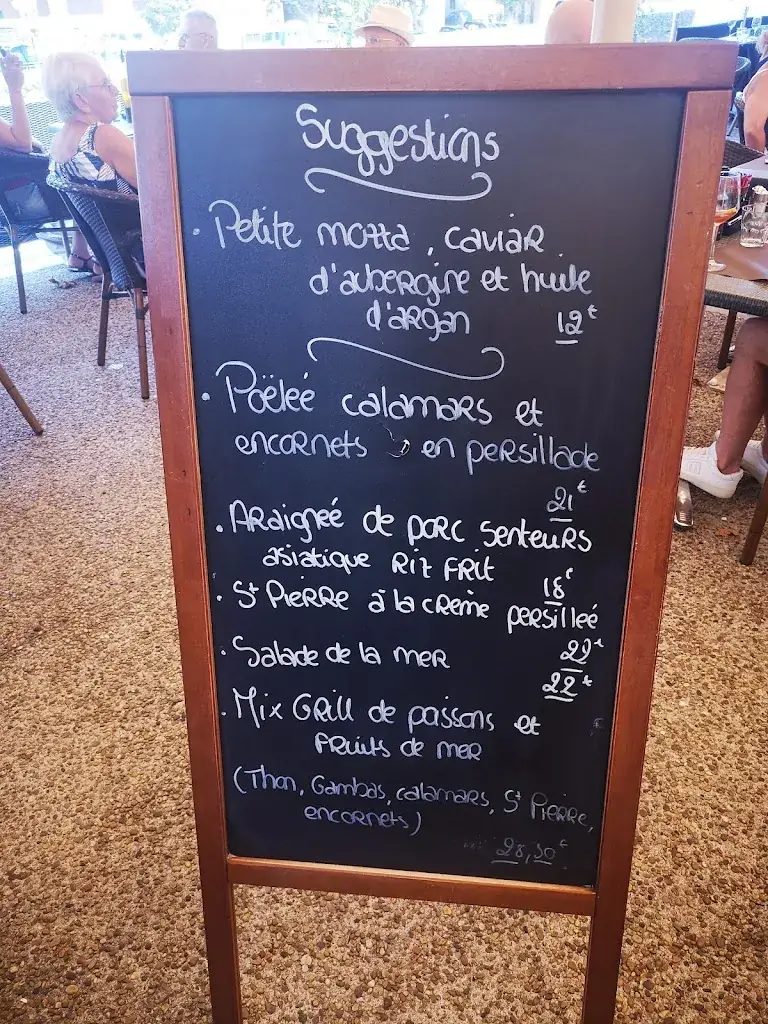 Suggestions
· Petite motta, caviar
d'aubergine et huile
d'argan 12€
· Poëleé calamars et
encornets en persillade
21€
· Araigneé de porc senteurs
asiatique Riz frit
18€
· St Pierre à la crème persilleé
22€
· Salade de la mer
22€
· Mix Grill de poissons et
fruits de mer
(Thon, Gambas, calamars, St Pierre,
encornets)
28,50€